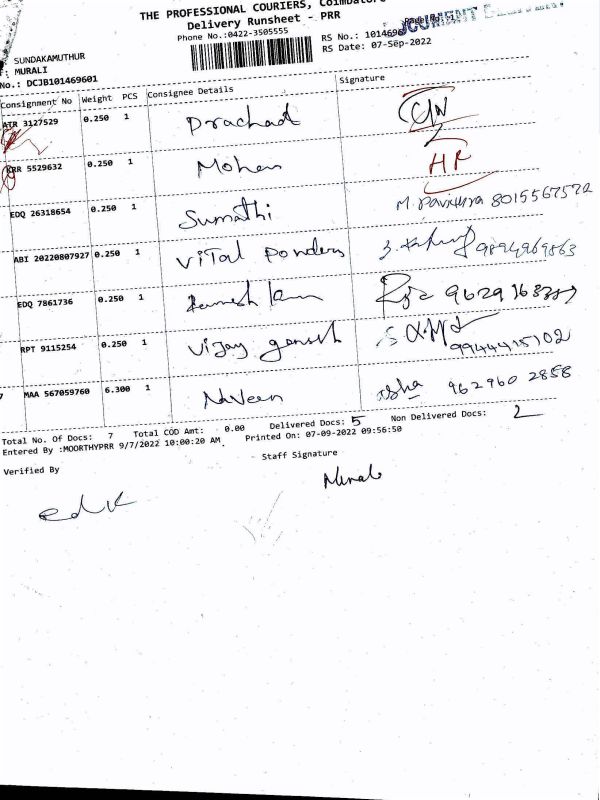 THE PROFESSIONAL COURIERS, Coimbatore
Delivery Runsheet - PRR
Phone No.:0422-3505555
RS No.:
RS Date: 07-Sep-2022
SUNDAKAMUTHUR
: MURALI
No.: DCJB101469601
Consignment No Weight PCS Consignee Details Signature
ATR 3127529 0.250 1 Prachad CN
KRR 5529632 0.250 1 Mohan HF
EDQ 26318654 0.250 1 Sumathi M. Pavithra 8015567572
ABI 20220807927 0.250 1 Vital Ponders
EDQ 7861736 0.250 1
RPT 9115254 0.250 1 Vijay ganesh 9944415102
7 MAA 567059760 6.300 1 Naveen 962960 2858
Total No. Of Docs: 7 Total COD Amt: 0.00 Delivered Docs: 5 Non Delivered Docs: 2
Entered By :MOORTHYPRR 9/7/2022 10:00:20 AM Printed On: 07-09-2022 09:56:50
Verified By Staff Signature